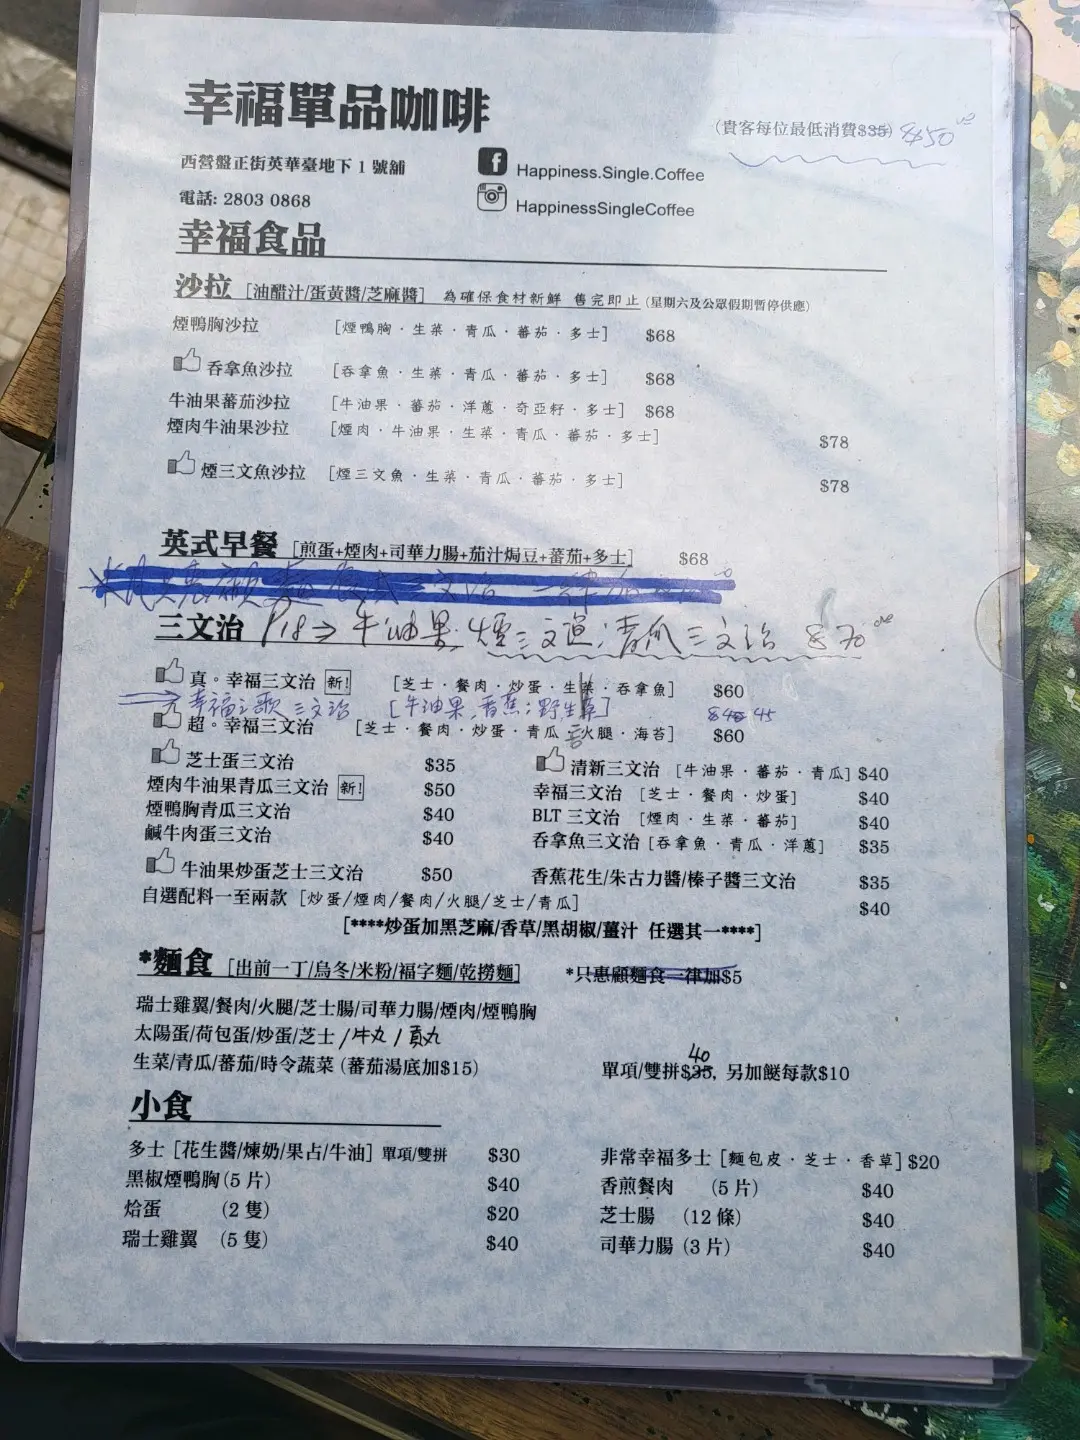 幸福單品咖啡
(貴客每位最低消費$35) $50
西營盤正街英華臺地下 1 號舖
Happiness.Single.Coffee
電話: 2803 0868
HappinessSingleCoffee
幸福食品
沙拉 [油醋汁/蛋黃醬/芝麻醬] 為確保食材新鮮 售完即止 (星期六及公眾假期暫停供應)
煙鴨胸沙拉 [煙鴨胸·生菜·青瓜·蕃茄·多士] $68
吞拿魚沙拉 [吞拿魚·生菜·青瓜·蕃茄·多士] $68
牛油果蕃茄沙拉 [牛油果·蕃茄·洋蔥·奇亞籽·多士] $68
煙肉牛油果沙拉 [煙肉·牛油果·生菜·青瓜·蕃茄·多士] $78
煙三文魚沙拉 [煙三文魚·生菜·青瓜·蕃茄·多士] $78
英式早餐 [煎蛋+煙肉+司華力腸+茄汁焗豆+蕃茄+多士] $68
三文治 P18⇒ 牛油果 煙三文魚 青瓜三文治 $70
真。幸福三文治 新! [芝士·餐肉·炒蛋·生菜·吞拿魚] $60
幸福之歌 三文治 [牛油果,香蕉,野生 $40 45
超。幸福三文治 [芝士·餐肉·炒蛋·青瓜 火腿·海苔] $60
芝士蛋三文治 $35 清新三文治 [牛油果·蕃茄·青瓜] $40
煙肉牛油果青瓜三文治 新! $50 幸福三文治 [芝士·餐肉·炒蛋] $40
煙鴨胸青瓜三文治 $40 BLT 三文治 [煙肉·生菜·蕃茄] $40
鹹牛肉蛋三文治 $40 吞拿魚三文治 [吞拿魚·青瓜·洋蔥] $35
牛油果炒蛋芝士三文治 $50 香蕉花生/朱古力醬/榛子醬三文治 $35
自選配料一至兩款 [炒蛋/煙肉/餐肉/火腿/芝士/青瓜] $40
[****炒蛋加黑芝麻/香草/黑胡椒/薑汁 任選其一****]
*麵食 [出前一丁/烏冬/米粉/福字麵/乾撈麵] *只惠顧麵食一律加$5
瑞士雞翼/餐肉/火腿/芝士腸/司華力腸/煙肉/煙鴨胸
太陽蛋/荷包蛋/炒蛋/芝士 /牛丸 /貢丸
生菜/青瓜/蕃茄/時令蔬菜 (蕃茄湯底加$15) 單項/雙拼$35, 40 另加餸每款$10
小食
多士 [花生醬/煉奶/果占/牛油] 單項/雙拼 $30 非常幸福多士 [麵包皮·芝士·香草] $20
黑椒煙鴨胸 (5 片) $40 香煎餐肉 (5 片) $40
烚蛋 (2 隻) $20 芝士腸 (12 條) $40
瑞士雞翼 (5 隻) $40 司華力腸 (3 片) $40